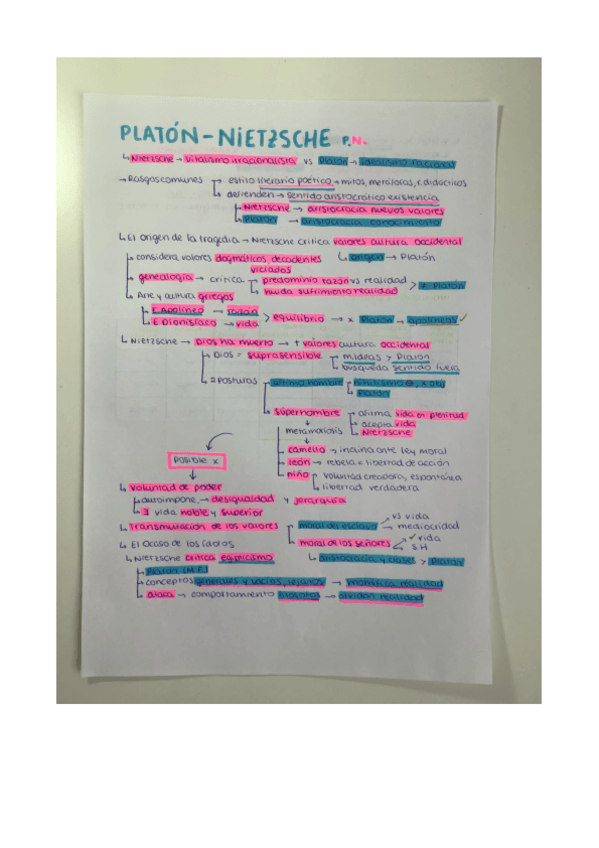 PLATÓN - NIETZSCHE P.N.
↳ Nietzsche → vitalismo irracionalista vs Platón → idealismo racional
→ Rasgos comunes → estilo literario poético → mitos, metáforas, r. didácticos
↳ defienden → sentido aristocrático existencia
↳ Nietzsche → aristocracia nuevos valores
↳ Platón → aristocracia conocimiento
↳ El origen de la tragedia → Nietzsche critica valores cultura occidental
considera valores dogmáticos, decadentes ↳ origen → Platón
viciados
genealogía → crítica predominio razón vs realidad
huida sufrimiento realidad > Platón
Arte y cultura griegos
E. Apolíneo → razón
E. Dionisíaco → vida > equilibrio → x Platón → apolíneas ✓
↳ Nietzsche → Dios ha muerto → + valores cultura occidental
↳ Dios = suprasensible m.ideas > Platón
búsqueda sentido fuera
↳ 2 Posturas último hombre
Platón
↳ superhombre afirma vida en plenitud
acepta vida
Nietzsche
metamorfosis
camello → inclina ante ley moral
león → rebela x libertad de acción
niño voluntad creadora, espontánea
libertad verdadera
Posible x
↳ Voluntad de poder
autoimpone → desigualdad y jerarquía
∃ vida noble y superior
↳ Transmutación de los valores moral del esclavo vs vida
→ mediocridad
moral de los señores ✓ vida
S.H
↳ aristocracia y clases > Platón
↳ El Ocaso de los ídolos
↳ Nietzsche critica egipcismo
Platón (M.F)
conceptos generales y vacíos, lejanos → momifica realidad
ataca → comportamiento filósofos → olvidan realidad